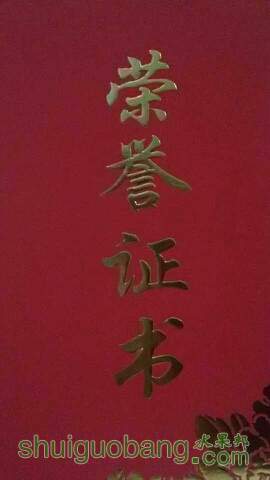 荣誉证书
水果邦
shuiguobang.com